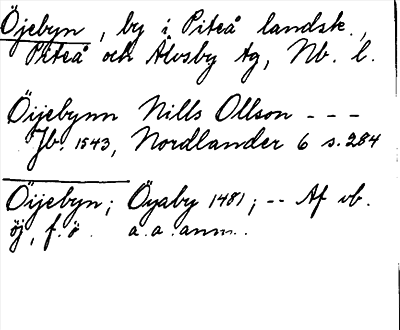 Öjebyn, by i Piteå landsk.,
Piteå och Älvsby tg, Nb. l.
Öijebynn Nills Ollson - - -
Jb. 1543, Nordlander 6 s. 284
Öijebyn; Öyaby 1481; -- Af vb.
öj, f. ö. a. a. anm.